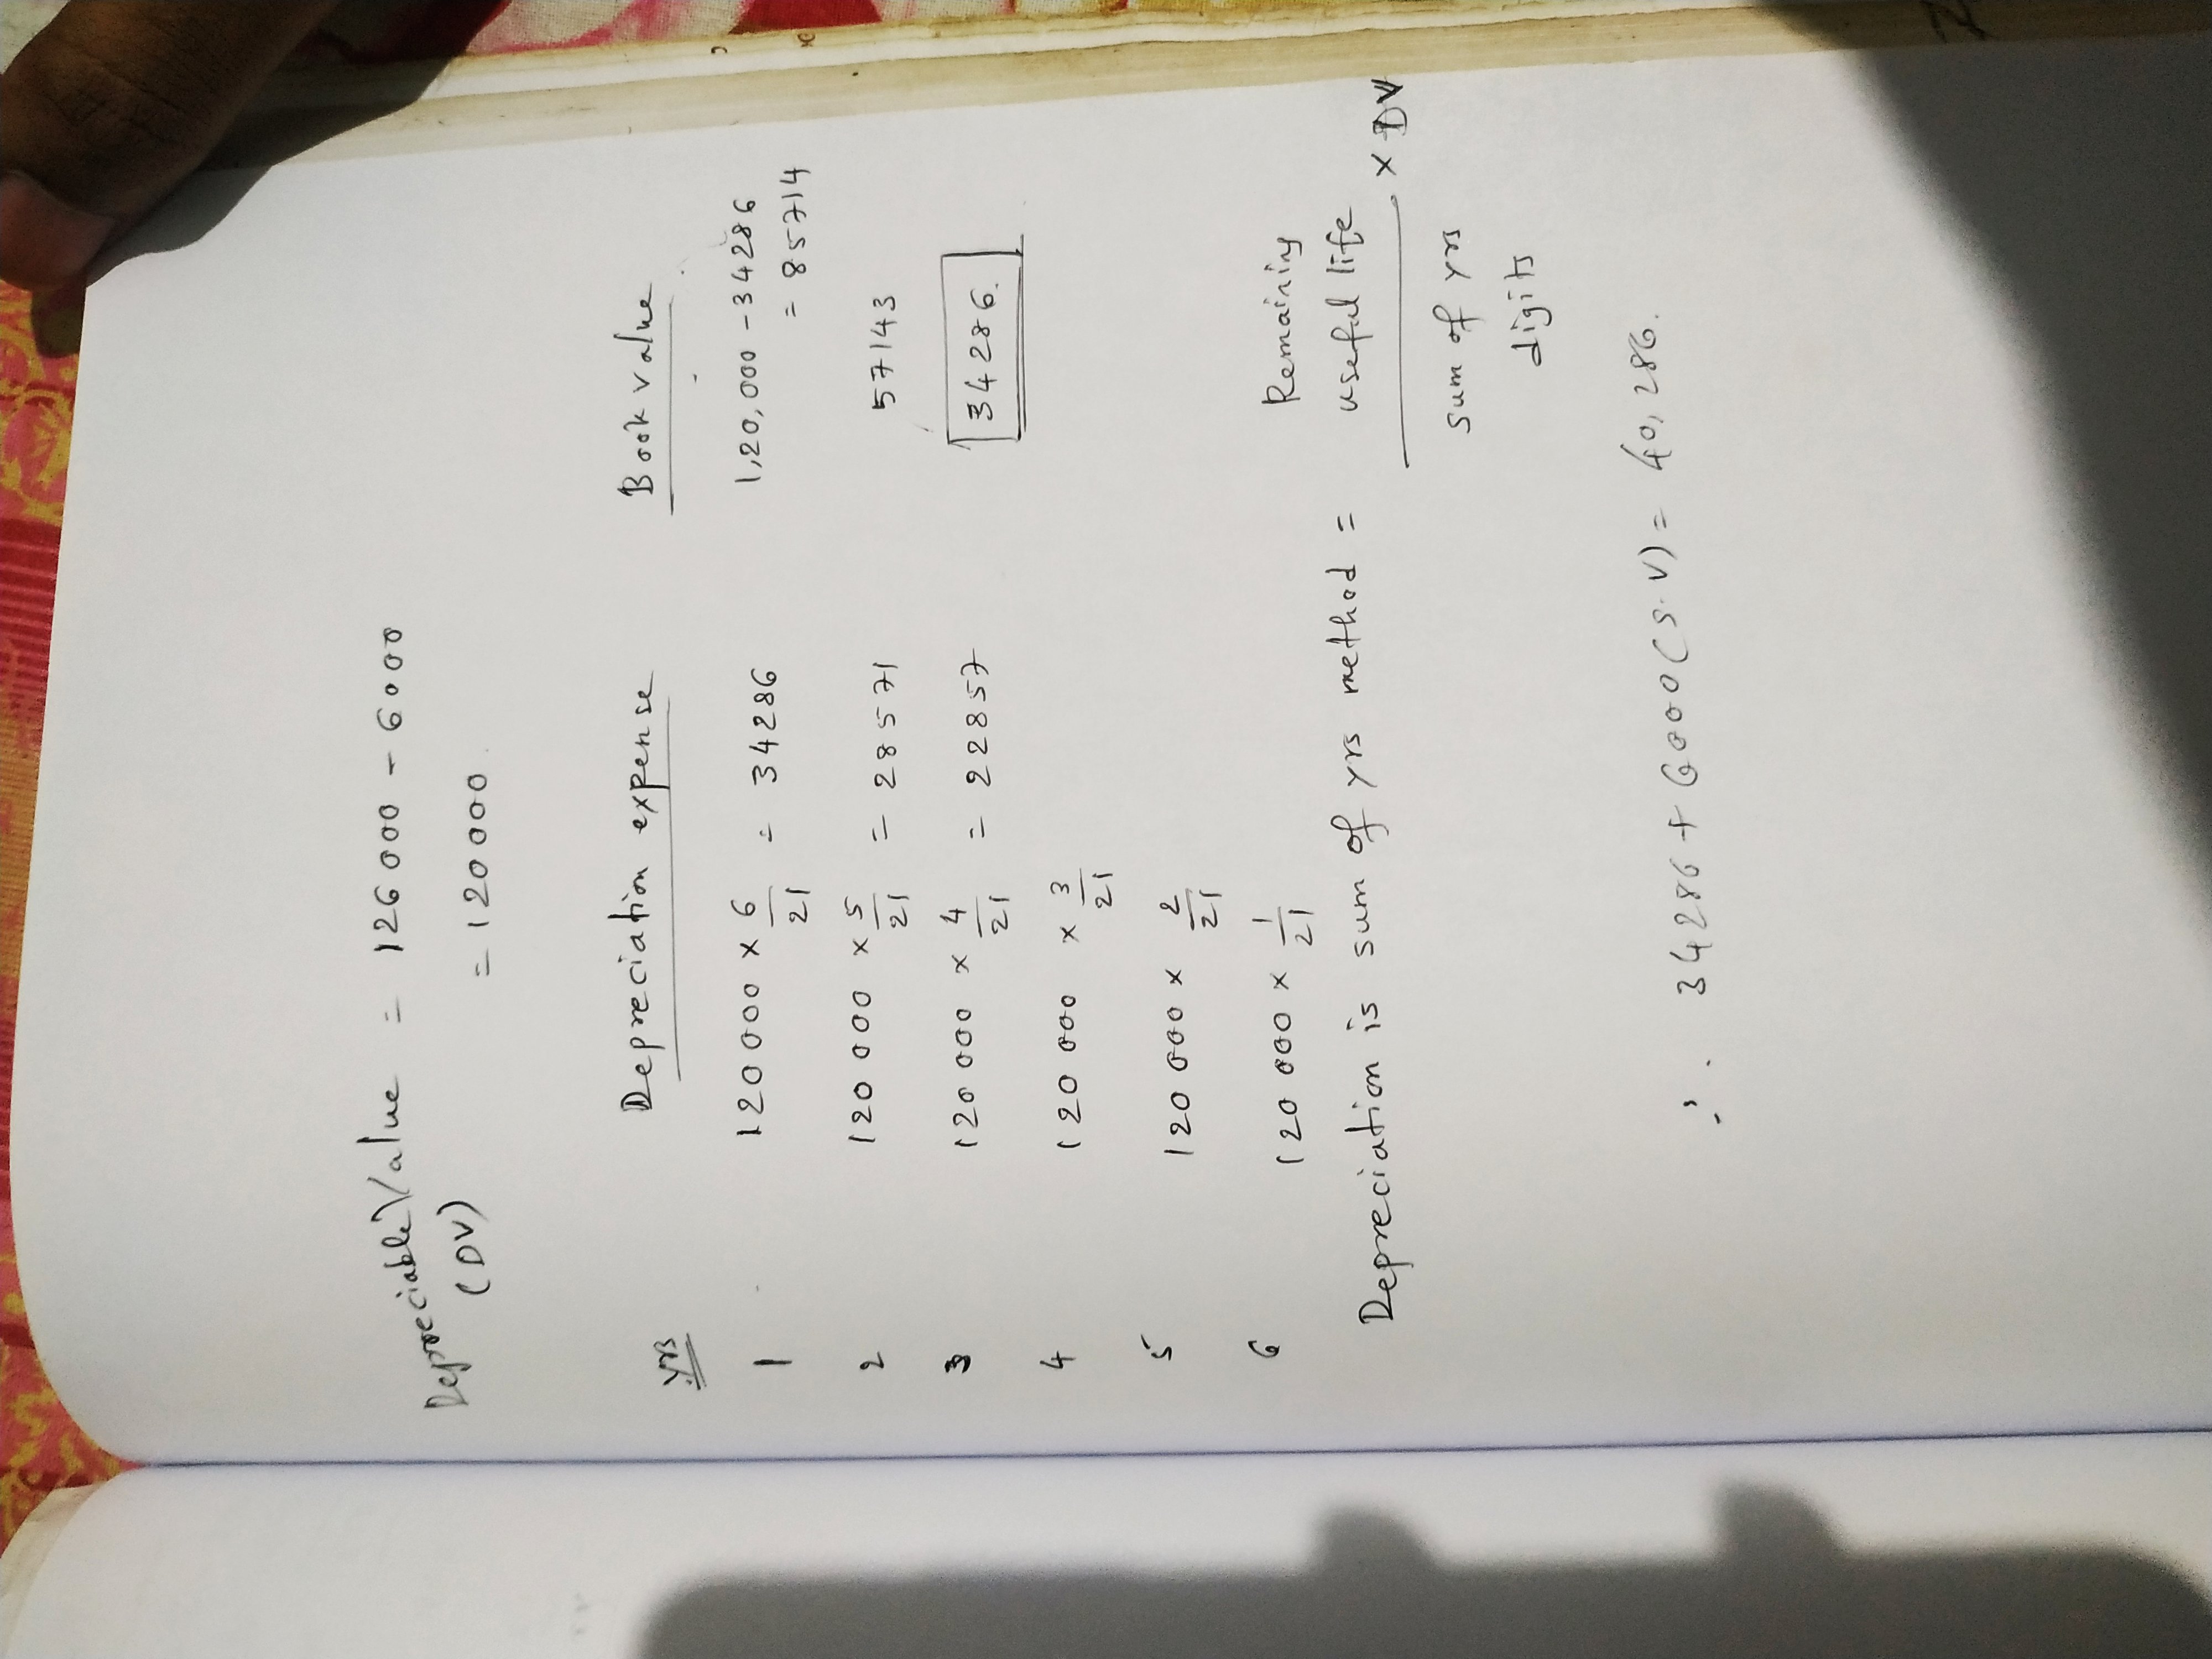 Depreciable Value = 126000 - 6000
(DV) = 120000.
Yrs Depreciation expense Book value
1 120000 x 6/21 = 34286 1,20,000 - 34286
= 85714
2 120000 x 5/21 = 28571 57143
3 120000 x 4/21 = 22857 34286.
4 120000 x 3/21
5 120000 x 2/21
6 120000 x 1/21
Depreciation is sum of yrs method = Remaining useful life / sum of yrs digits x DV
∴ 34286 + 6000 (S.V) = 40,286.